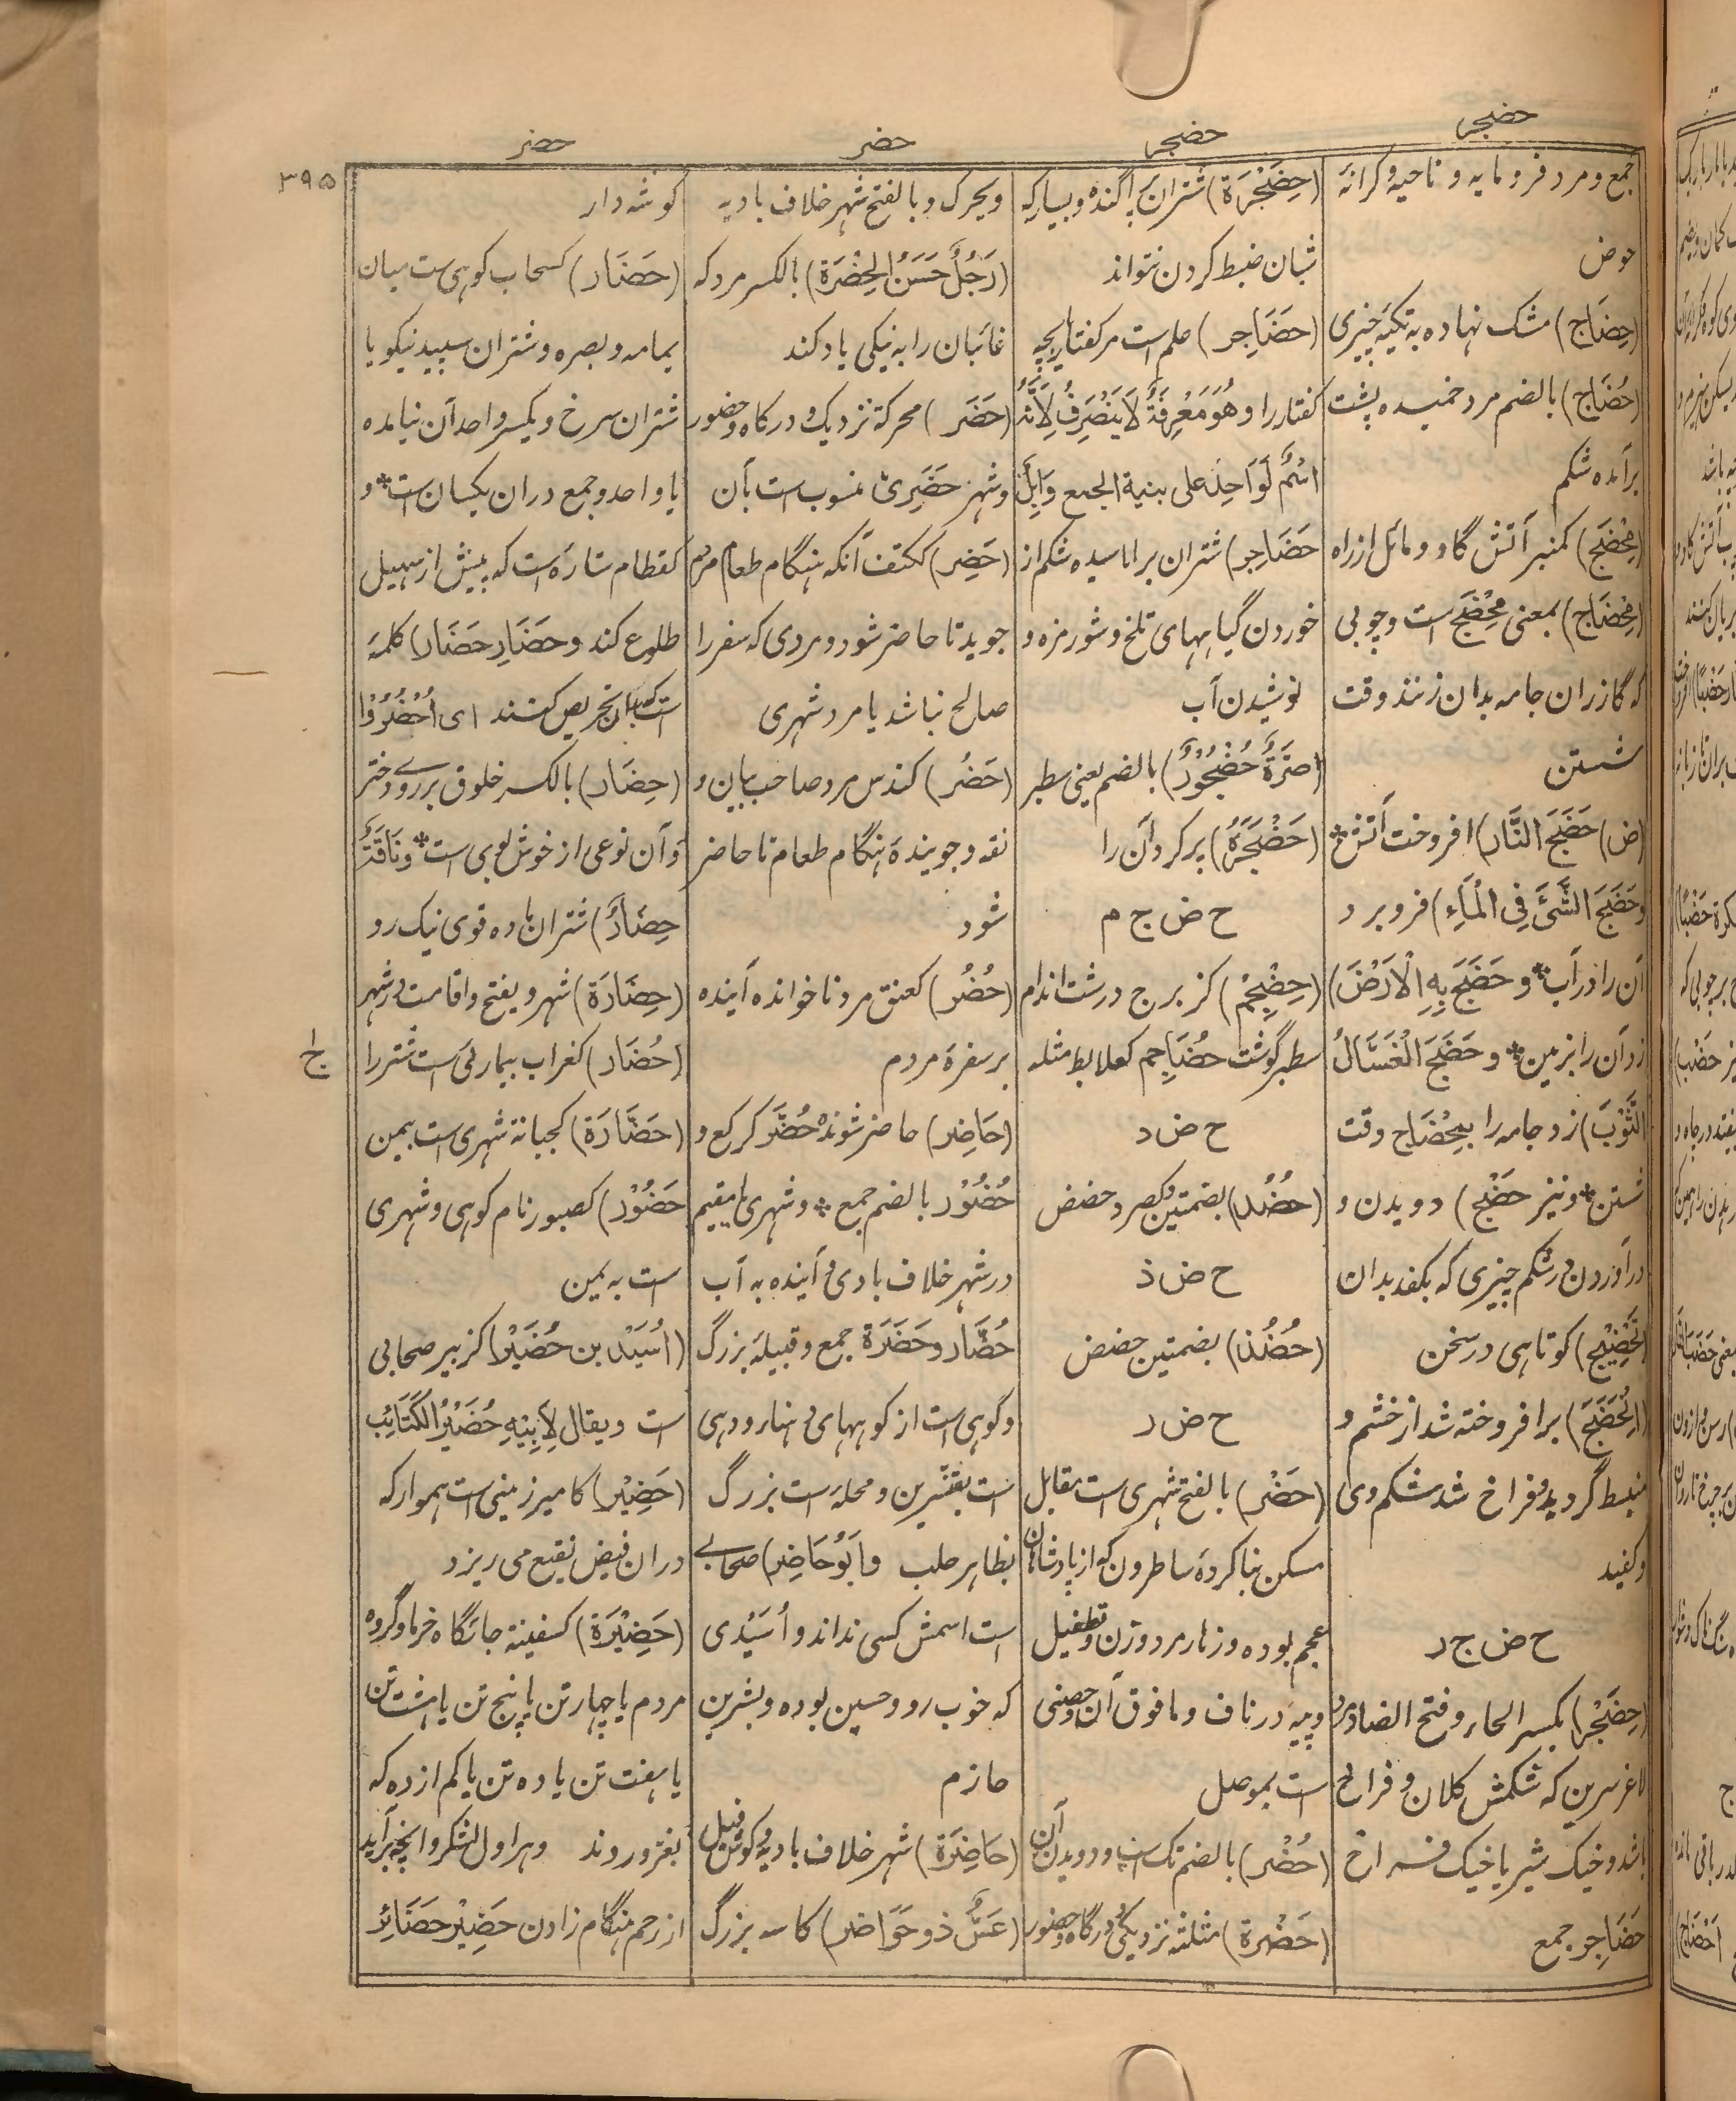 حضجر
حضجر
حضر
حضر
۳۹۵
جمع و مرد فرومایه و ناحیه و کرانهٔ
حوض
(حِضَاج) مشک نهاده به تکیهٔ چیزی
(حُضَاج) بالضم مرد خمیده پشت
برآمده شکم
(مِحْضَج) کمنبر آتش گاو و مائل از راه
(مِحْضَاج) بمعنی مِحْضَج است و چوبی
که گازران جامه بدان زنند وقت
شستن
(ض) حَضَجَ النَّار) افروخت آتش *
وحَضَجَ الشَّیَٔ فِی الْمَاءِ) فرو برد
آن را در آب * و حَضَجَ بِهِ الْاَرْضَ)
زد آن را بزمین * و حَضَجَ الْغَسَّالُ
الثَّوْبَ) زد جامه را بمِحْضَاج وقت
شستن * ونیز حَضْج) دویدن و
درآوردن در شکم چیزی که بکفد بدان
(تَحْضِیْج) کوتاهی در سخن
(اِنْحَضَجَ) برافروخته شد از خشم و
منبسط گردید و فراخ شد شکم وی
و کفید
ح ض ج ر
(حِضَجْر) بکسر الحاء و فتح الضاد مرد
لاغر سرین که شکمش کلان و فراخ
باشد و خیک شیر یا خیک فراخ
حَضَاجِر جمع
(حِضَجْرَة) شتران پراگنده و بسیار که
شبان ضبط کردن نتواند
(حَضَاجِر) علم است مر کفتار یا بچه
کفتار را و هُوَ مَعْرِفَةٌ لَا یَنْصَرِفُ لِاَنَّهُ
اسْمٌ لِوَاحِدٍ علی بنیة الجمع وَاِبِلٌ
حَضَاجِر) شتران برآماسیده شکم از
خوردن گیاههای تلخ و شور مزه و
نوشیدن آب
(صُرَّةٌ حُضْجُوْرٌ) بالضم یعنی سطبر
(حَضْجَرَهُ) پر کرد آن را
ح ض ج م
(حِضْجِم) کزبرج درشت اندام
سطبر گوشت حُضَاجِم کعلابط مثله
ح ض د
(حُضُد) بضمتین وکصرد حضض
ح ض ذ
(حُضُذ) بضمتین حضض
ح ض ر
(حَضْر) بالفتح شهری است مقابل
مسکن بنا کردهٔ ساطرون که از پادشاهان
عجم بوده و زنار مرد و زن و تطفیل
و پیه در ناف و مافوق آن و حصنی
است بموصل
(حُضْر) بالضم تک اسپ و دویدن آن
(حَضْرة) مثلثة نزدیکی و درگاه و حضور
ویحرک و بالفتح شهر خلاف بادیه
(رَجُلٌ حَسَنُ الحِضْرَة) بالکسر مرد که
غائبان را به نیکی یاد کند
(حَضَر) محرکة نزدیک و درگاه و حضور
و شهر حَضَرِیّ منسوب است بآن
(حَضِر) ککتف آنکه هنگام طعام مردم
جوید تا حاضر شود و مردی که سفر را
صالح نباشد یا مرد شهری
(حَضُر) کندس مرد صاحب بیان و
نفقه و جویندهٔ هنگام طعام تا حاضر
شود
(حُضُر) کعنق مرد ناخوانده آینده
بر سفرهٔ مردم
(حَاضِر) حاضر شونده حُضَّر کرکع و
حُضُوْر بالضم جمع * و شهری یا مقیم
در شهر خلاف بادی و آینده به آب
حُضَّار و حَضَرَة جمع و قبیلهٔ بزرگ
و کوهی است از کوههای دهنا و دهی
است بقنسرین و محله است بزرگ
بظاهر حلب و اَبُوْ حَاضِر) صحابی
است اسمش کسی نداند و اُسَیْدی
که خوب رو و حسین بوده و بشر بن
حازم
(حَاضِرَة) شهر خلاف بادیه و گوش فیل
(عَسٌّ ذو حَوَاضِر) کاسه بزرگ
گوشه دار
(حَضَار) کسحاب کوهی ست میان
یمامه و بصره و شتران سپید نیکو یا
شتران سرخ و یکسر واحد آن نیامده
یا واحد و جمع دران یکسان است * و
کقطام ستاره است که پیش از سهیل
طلوع کند و حَضَارِ حَضَارِ) کلمهٔ
است که بآن تحریص کنند ای اُحْضُرُوْا
(حِضَار) بالکسر خلوق بر روی دختر
و آن نوعی از خوش بوی است * و نَاقَةٌ
حِضَارٌ) شتران ماده قوی نیک رو
(حِضَارَة) شهر و یفتح و اقامت در شهر
(حُضَار) کغراب بیماریٔ است شتر را
(حَضَّارَة) کجبانة شهری است بیمن
حَضُوْر) کصبور نام کوهی و شهری
ست به یمن
(اُسَیْد بن حُضَیْر) کزبیر صحابی
است و یقال لِاَبِیْهِ حُضَیْرُ الکَتَائِب
(حَضِیْر) کامیر زمینی است هموار که
دران فیض نقیع می ریزد
(حَضِیْرَة) کسفینة جائگاه خرما و گروه
مردم یا چهار تن یا پنج تن یا هشت تن
یا هفت تن یا ده تن یا کم از ده که
بغزو روند و هراول لشکر و آنچه برآید
از رحم هنگام زادن حَضِیْر حَضَائِر
ج ا